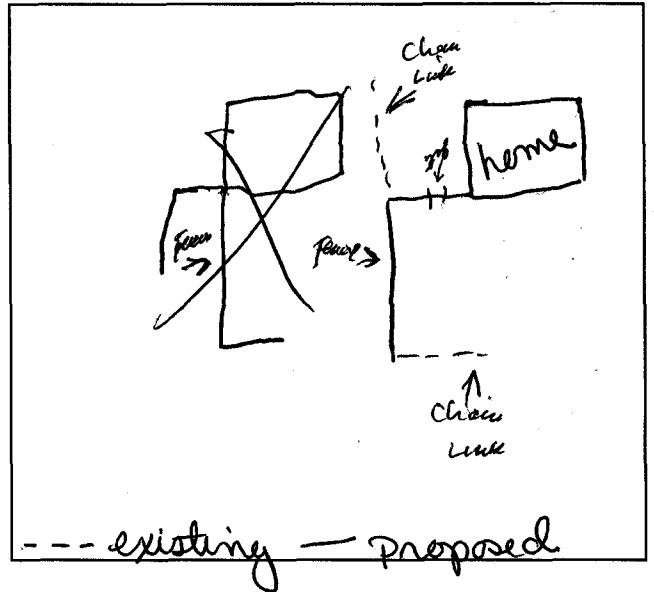 Chain
Link
home
Fence
Chain
Link
--- existing — proposed